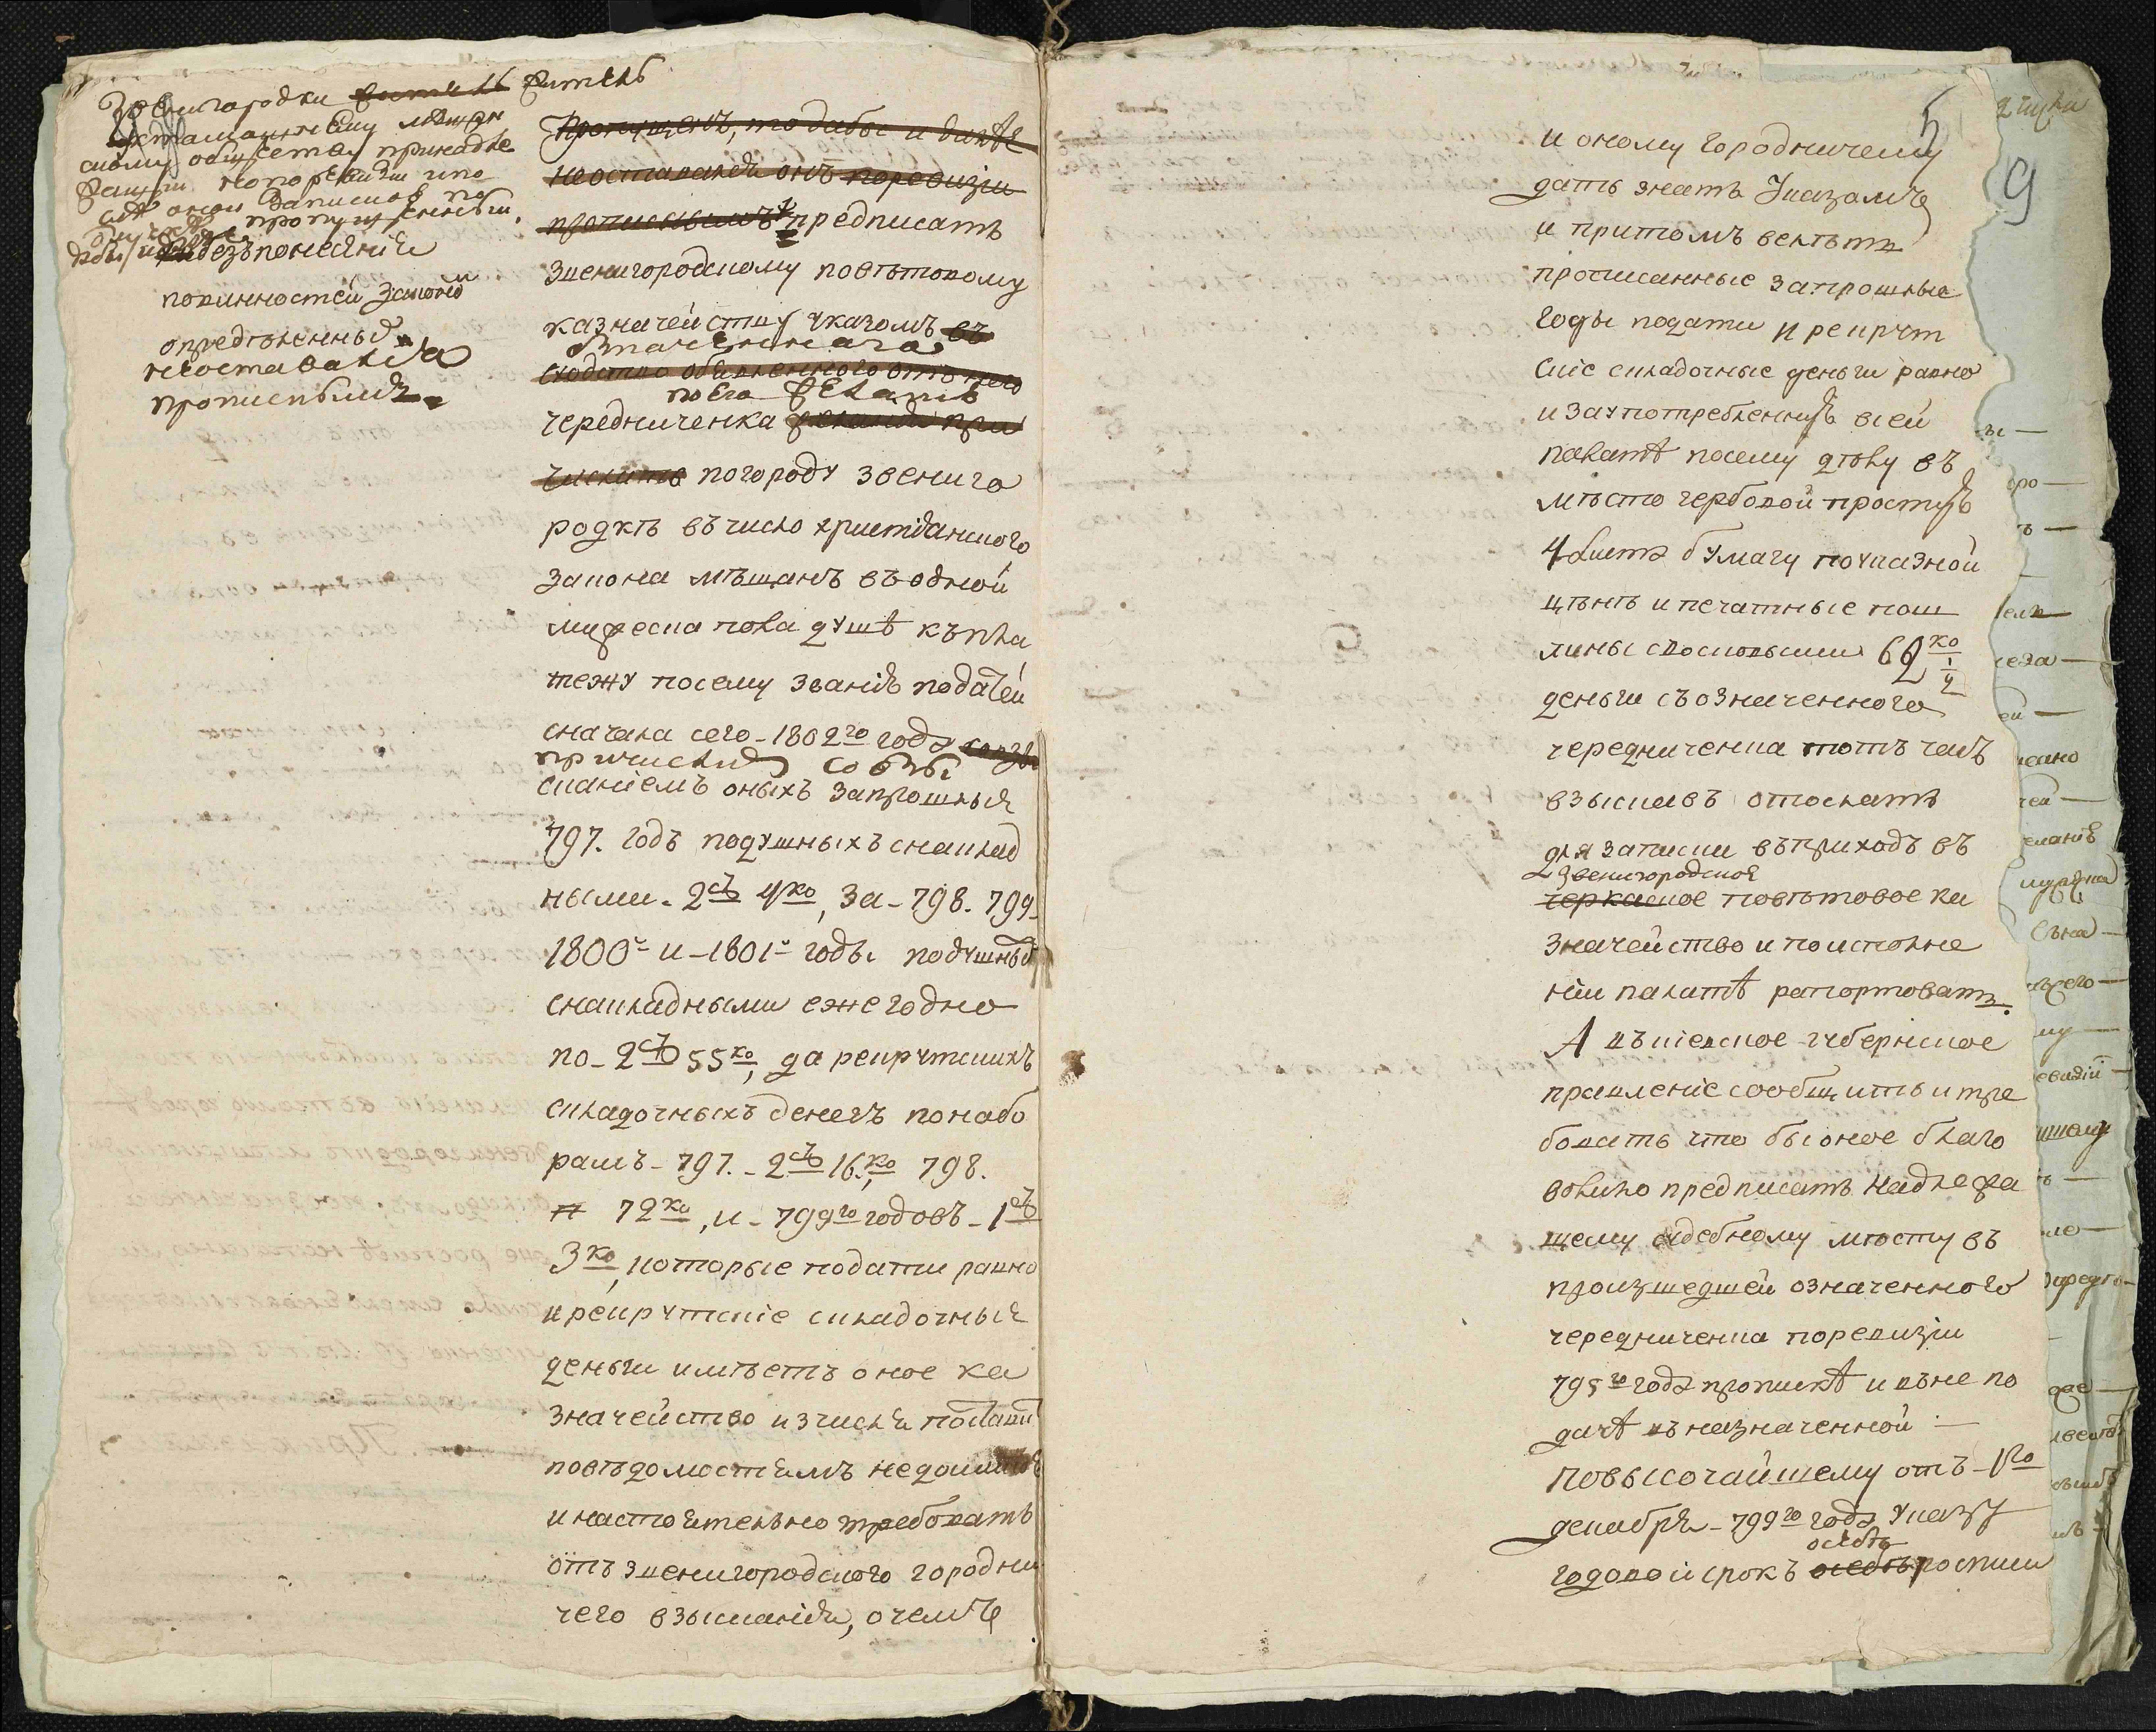 Звенигородки житель житель
мещан
скому обществу принадле
жащим
пропущенный,
дабы и без понесения
повинностей законом
определенных
неоставался
прописным
пропущенъ, то дабы и далѣе
неоставался онъ поревизіи
прописнымъ предписать
звенигородскому повѣтовому
казначейству указомъ въ
означеннаго
сходство объявленного отъ него
по его желанію
чередниченка желанія при
числить погороду звениго
родкѣ въчисло христіанского
закона мѣщанъ въодной
мужеска пола душѣ къпла
тежу посему званію податей
сначала сего 1802го года совзы
причислив со взы
сканіемъ оныхъ запрошлыя
797. годъ подушныхъ снаклад
ными 2 4ко, за 798. 799
1800 и 1801 годы подушныя
снакладными ежегодно
по 2 55ко, да рекрутскихъ
складочныхъ денегъ понабо
рамъ 797. 2 16ко, 798.
72ко, и 799го годовъ 1
3ко, которые подати равно
ирекрутскіе складочныя
деньги имѣетъ оное ка
значейство изчисля поставит
повѣдомостямъ недоимкою
инастоятельно требовать
отъ звенигородского городни
чего взысканія, очемъ
5
9
и оному городничему
дать знать указомъ
и притомъ велѣть
прописанные запрошлые
годы подати и рекрут
скіе складочные деньги равно
изаупотребленную всей
палатѣ посему дѣлу въ
мѣсто гербовой простую
4 листа бумагу поуказной
цѣнѣ и печатные пош
лины свосковыми 62 ко
1/4
деньги съозначенного
чередниченка тотъ часъ
взыскавъ отослать
для записки въприходъ въ
звенигородское
черкаское повѣтовое ка
значейство и поисполне
ніи палатѣ рапортовать.
А въкіевское губернское
правленіе сообщить и тре
бовать что бы оное благо
волило предписать надлежа
щему судебному мѣсту въ
произшедшей означенного
чередниченка поревизіи
795го года прописке и въне по
дачѣ въназначенной
повысочайшему отъ 1го
декабря 799го года указу
особѣ
годовой срокъ особѣ росписи